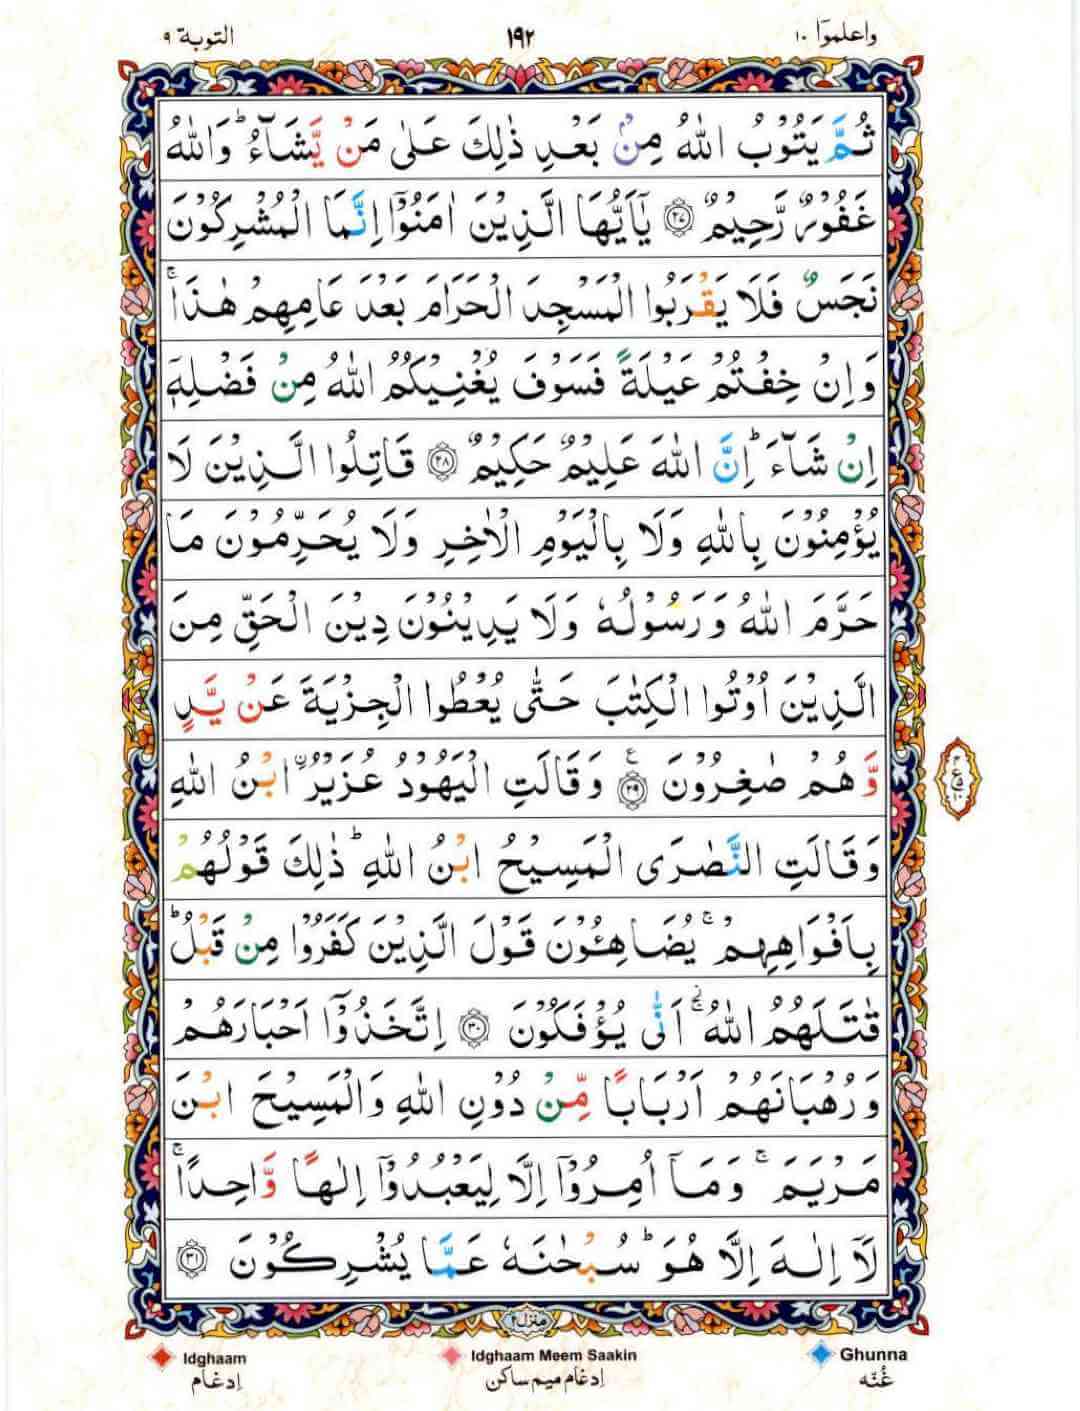 واعلموا ١٠ ١٩٢ التوبة ٩
ثُمَّ يَتُوْبُ اللّٰهُ مِنْۢ بَعْدِ ذٰلِكَ عَلٰى مَنْ يَّشَآءُ ؕ وَاللّٰهُ
غَفُوْرٌ رَّحِيْمٌ ۟۲۷ يٰۤاَيُّهَا الَّذِيْنَ اٰمَنُوْۤا اِنَّمَا الْمُشْرِكُوْنَ
نَجَسٌ فَلَا يَقْرَبُوا الْمَسْجِدَ الْحَرَامَ بَعْدَ عَامِهِمْ هٰذَا ۚ
وَاِنْ خِفْتُمْ عَيْلَةً فَسَوْفَ يُغْنِيْكُمُ اللّٰهُ مِنْ فَضْلِهٖۤ
اِنْ شَآءَ ؕ اِنَّ اللّٰهَ عَلِيْمٌ حَكِيْمٌ ۟۲۸ قَاتِلُوا الَّذِيْنَ لَا
يُؤْمِنُوْنَ بِاللّٰهِ وَلَا بِالْيَوْمِ الْاٰخِرِ وَلَا يُحَرِّمُوْنَ مَا
حَرَّمَ اللّٰهُ وَرَسُوْلُهٗ وَلَا يَدِيْنُوْنَ دِيْنَ الْحَقِّ مِنَ
الَّذِيْنَ اُوْتُوا الْكِتٰبَ حَتّٰى يُعْطُوا الْجِزْيَةَ عَنْ يَّدٍ
وَّهُمْ صٰغِرُوْنَ ۟۲۹ ع وَقَالَتِ الْيَهُوْدُ عُزَيْرُ ۨابْنُ اللّٰهِ
وَقَالَتِ النَّصٰرَى الْمَسِيْحُ ابْنُ اللّٰهِ ؕ ذٰلِكَ قَوْلُهُمْ
بِاَفْوَاهِهِمْ ۚ يُضَاهِـُٔوْنَ قَوْلَ الَّذِيْنَ كَفَرُوْا مِنْ قَبْلُ ؕ
قٰتَلَهُمُ اللّٰهُ ۚ اَنّٰى يُؤْفَكُوْنَ ۟۳۰ اِتَّخَذُوْۤا اَحْبَارَهُمْ
وَرُهْبَانَهُمْ اَرْبَابًا مِّنْ دُوْنِ اللّٰهِ وَالْمَسِيْحَ ابْنَ
مَرْيَمَ ۚ وَمَاۤ اُمِرُوْۤا اِلَّا لِيَعْبُدُوْۤا اِلٰهًا وَّاحِدًا ۚ
لَاۤ اِلٰهَ اِلَّا هُوَ ؕ سُبْحٰنَهٗ عَمَّا يُشْرِكُوْنَ ۟۳۱
منزل ٢
Idghaam Idghaam Meem Saakin Ghunna
إدغام إدغام ميم ساكن غُنّه